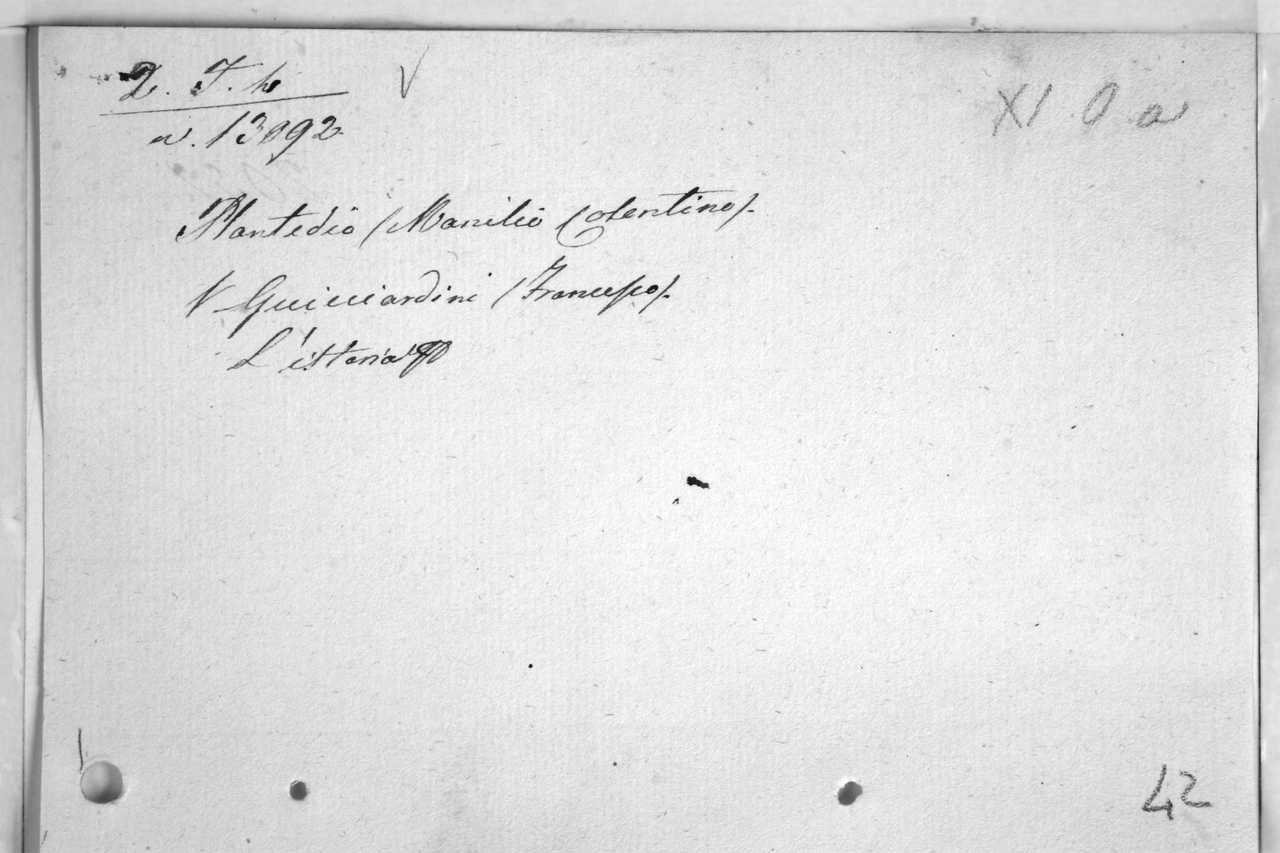 2. T. h
n. 13092
XI 0 a
Plantedio (Manilio Colentino).
V Guicciardini (Francesco).
L'istoria
42